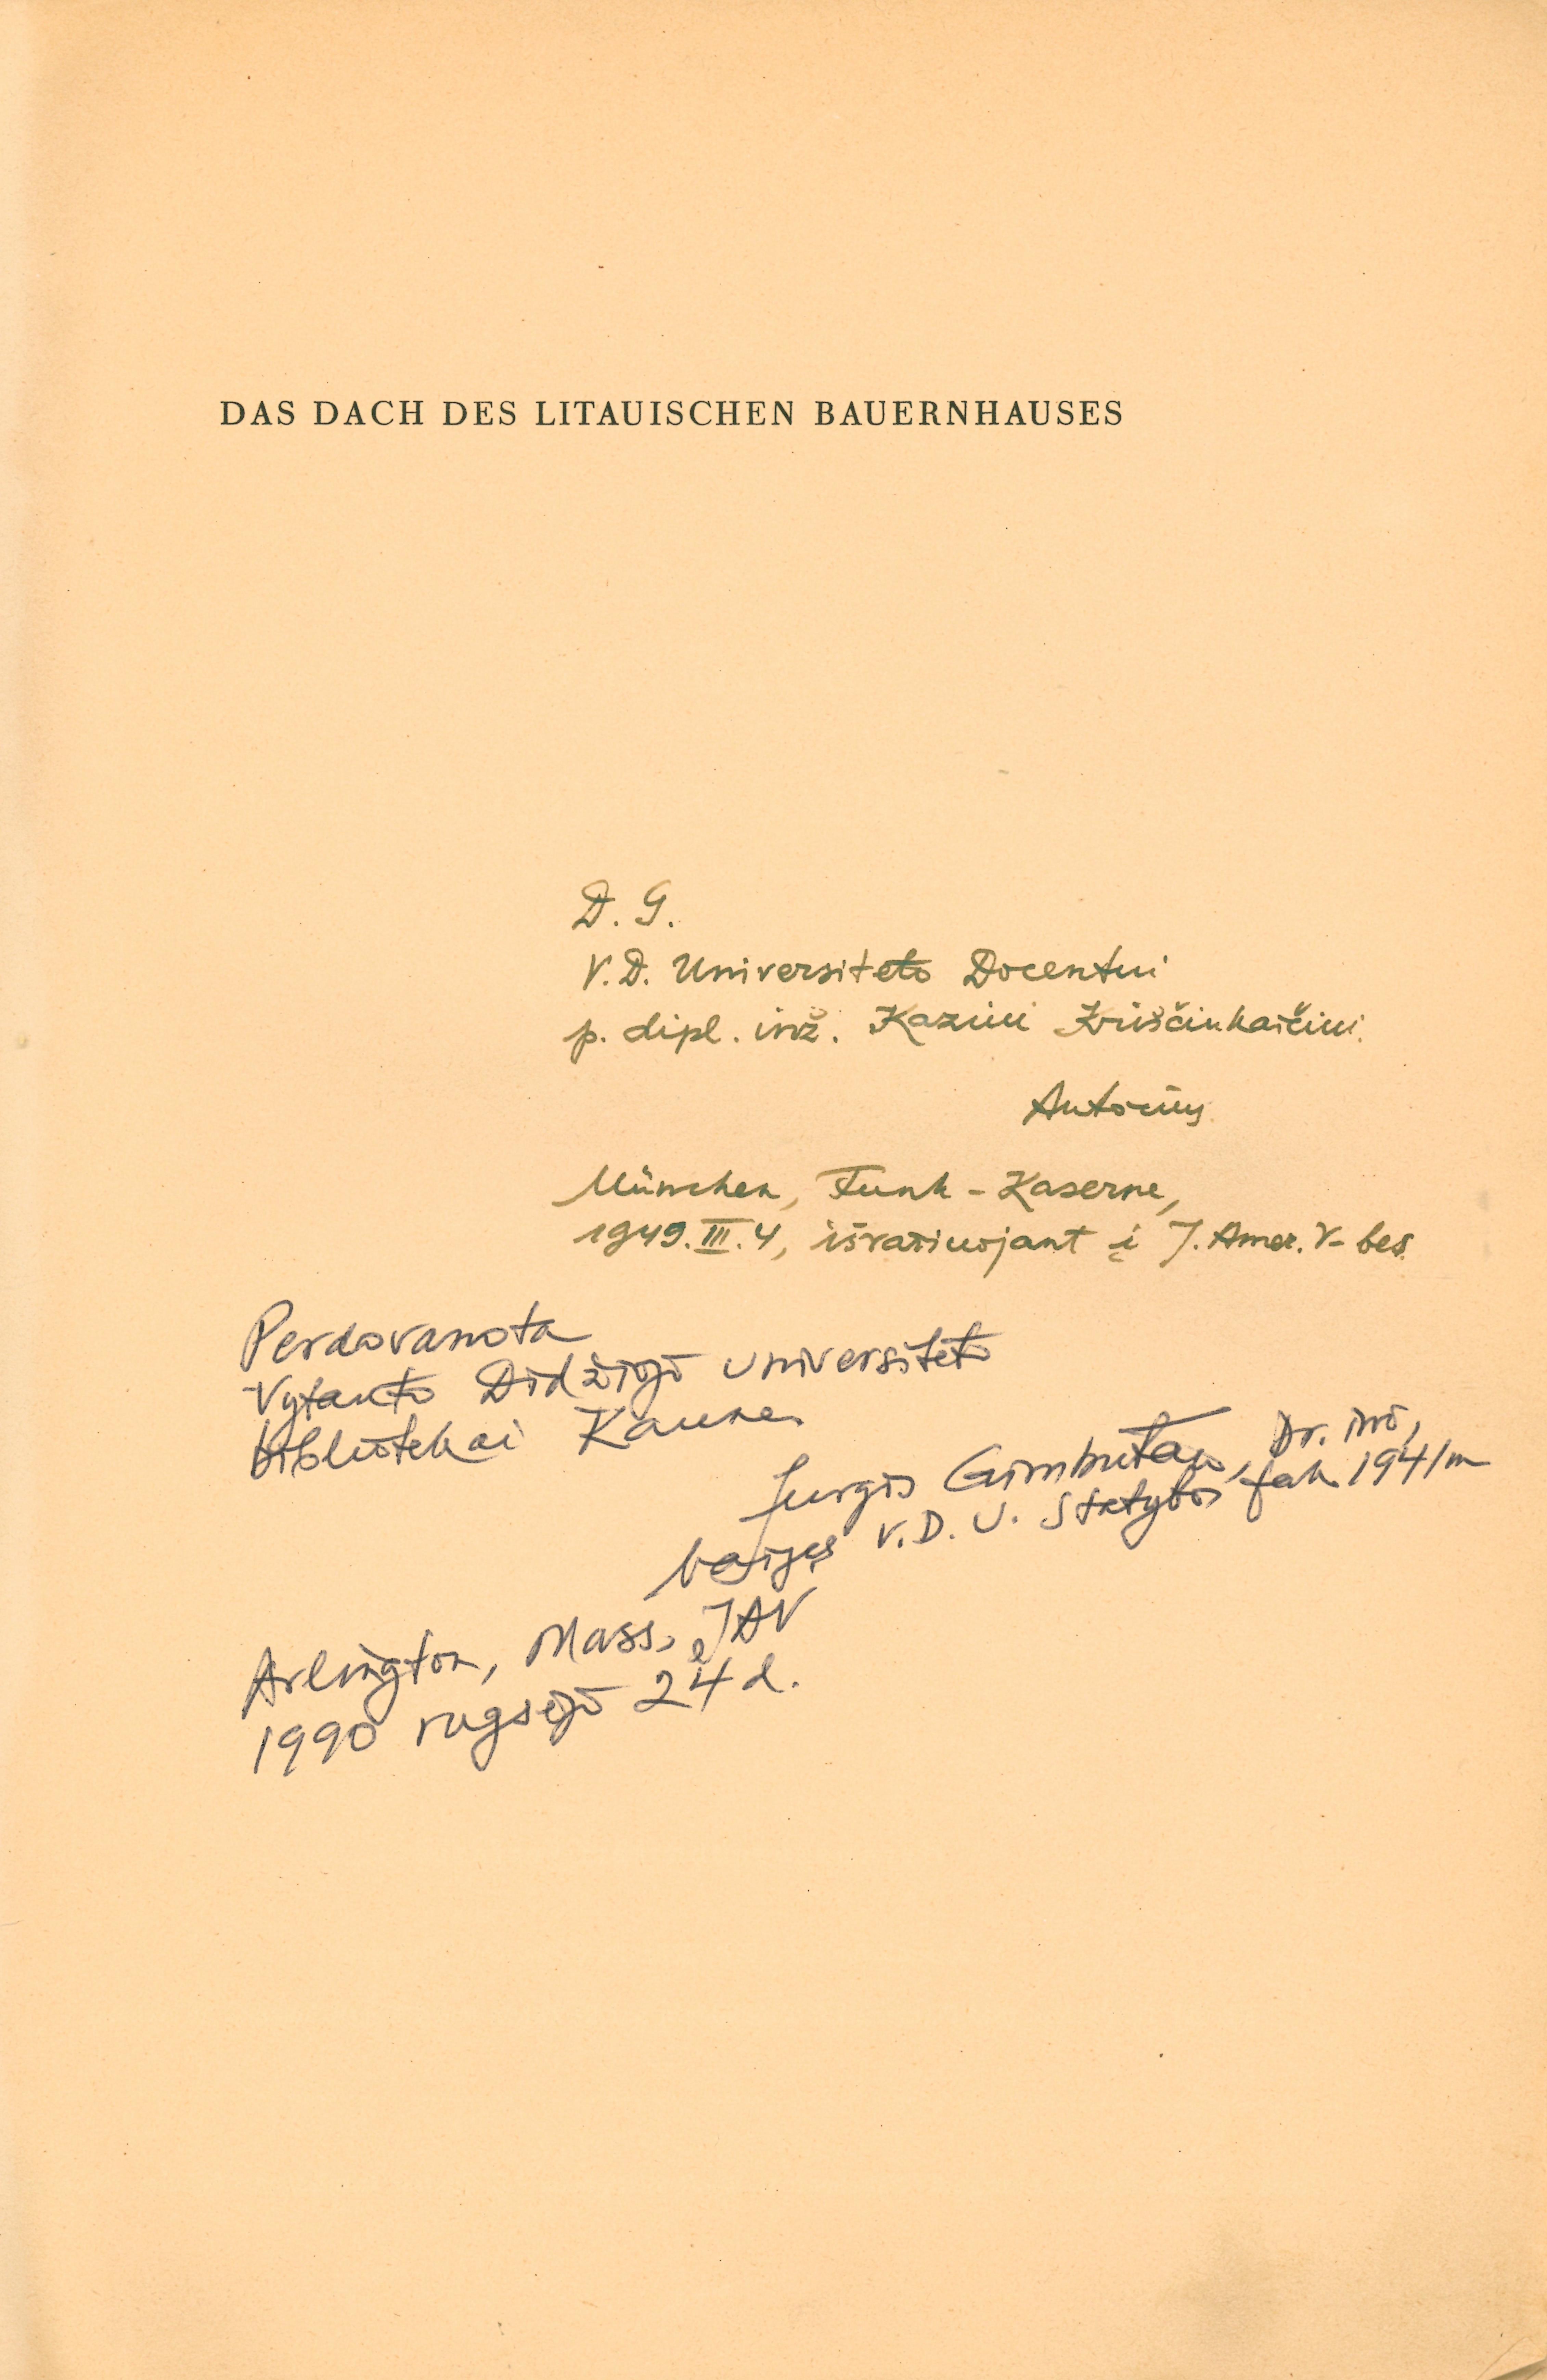 DAS DACH DES LITAUISCHEN BAUERNHAUSES
D. G.
V.D. Universiteto Docentui
p. dipl. inž. Kaziui Kriščiukaičiui.
Autorius
München, Funk-Kaserne,
1949.III.4, išvažiuojant į J. Amer. V-bes.
Perdovanota
Vytauto Didžiojo Universiteto
bibliotekai Kaune.
Jurgis Gimbutas, Dr. inž,
baigęs V.D.U. Statybos fak. 1941 m
Arlington, Mass. JAV
1990 rugsėjo 24 d.